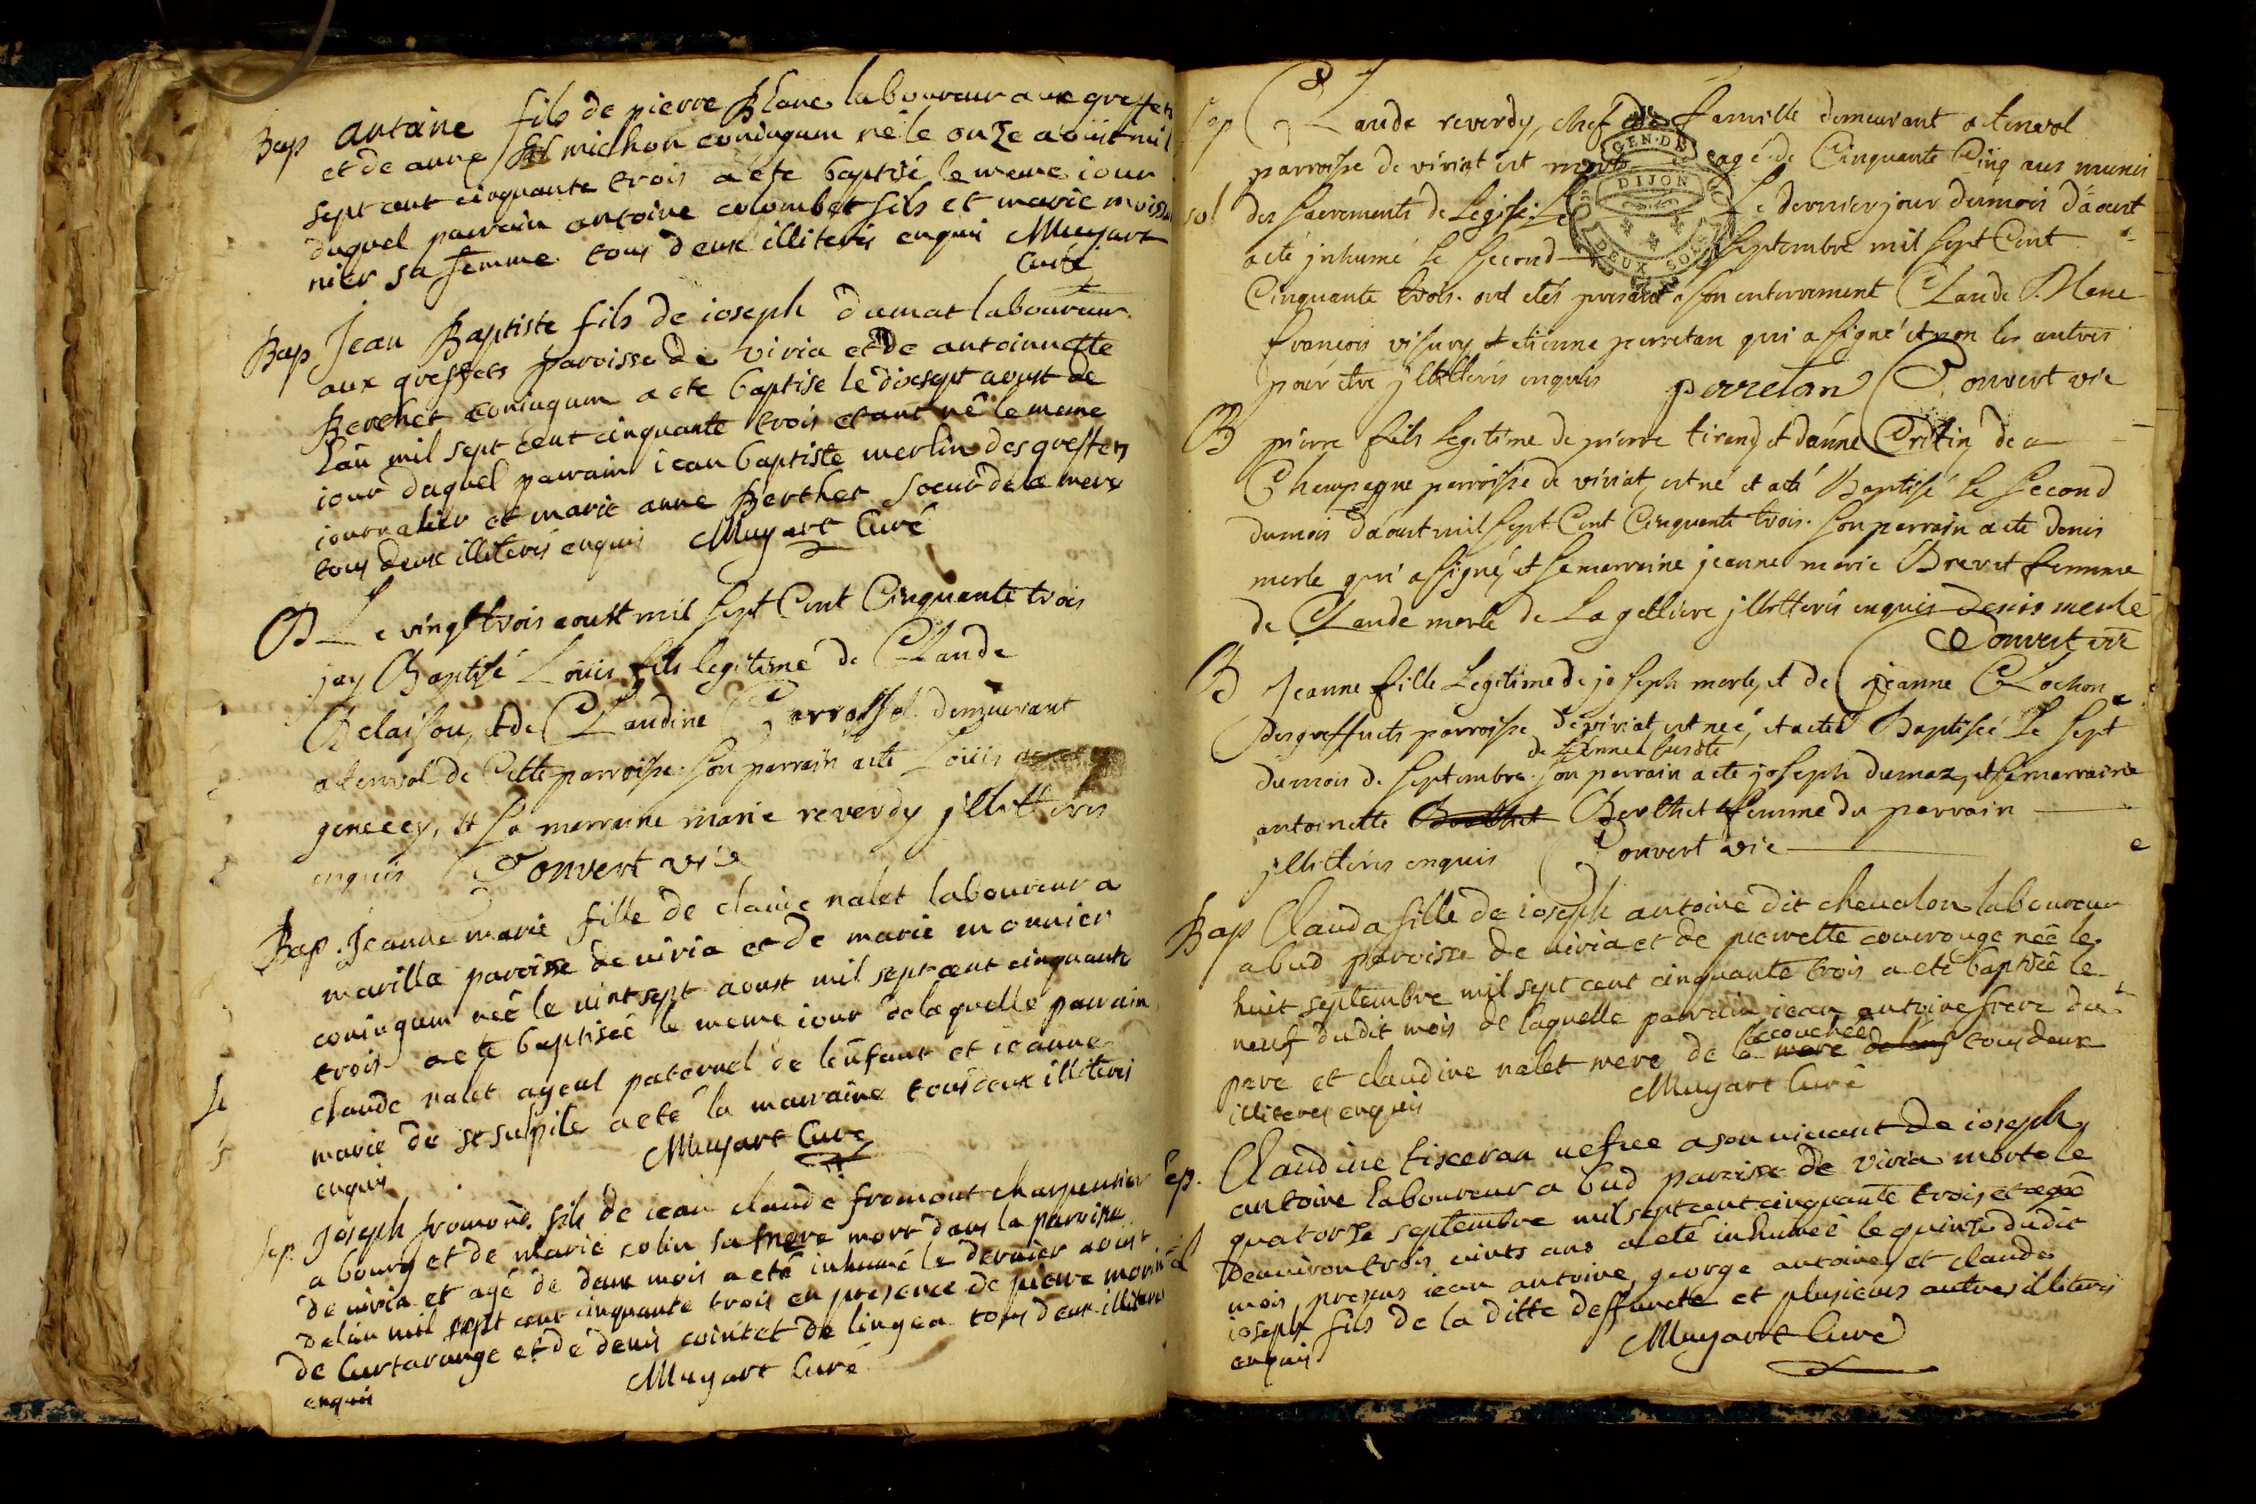 Bap antoine fils de pierre Blanc laboureur aux greffets
et de anne michon coniugum né le onze aoüt mil
sept cent cinquante trois a eté baptisé le meme iour
duquel parrain antoine colombet fils et marie
nier sa femme tous deux illiteris enquis Muyart
Curé
Bap Jean Baptiste fils de ioseph dumat laboureur
aux greffets paroisse de viria et de antoinette
Berthet coniugum a eté baptisé le dixsept aoust de
l'an mil sept cent cinquante trois etant né le meme
iour duquel parrain iean baptiste merlin des greffets
iournalier et marie anne Berthet soeur de la mere
tous deux illiteris enquis Muyart Curé
B Le vingttrois aoust mil sept Cent Cinquante trois
jay Baptisé Loüis fils legitime de Claude
Belaison, et de Claudine demeurant
a tenvol de Cette parroisse. son parrain a eté Loüis
et sa marraine marie reverdy jllitteris
enquis Convert vic
Bap. Jeanne marie fille de claude nalet laboureur a
marilla paroisse de viria et de marie monnier
coniugum neé le vintsept aoust mil sept cent cinquante
trois a eté baptisée le meme iour de laquelle parrain
claude nalet ayeul paternel de l'enfant et ieanne
marie de st sulpile a eté la marraine tous deux illiteris
enquis Muyart Curé
sep. Joseph fromond fils de iean claude fromont charpentier
a bourg et de marie colin sa mere mort dans la paroisse
de viria et agé de deux mois a eté inhumé le dernier aoust
de l'an mil sept cent cinquante trois en presence de pierre morin
de Curtarange et de denis cointet de lingea tous deux illiteris
enquis Muyart Curé
Sep Claude reverdy, chef de famille demeurant a tenvol
parroisse de viriat est mort eagé de Cinquante Cinq ans munis
des sacrements de Leglise Le dernier jour du mois d'aoust
a eté jnhumé le second septembre mil sept Cent
Cinquante trois. ont etés present a son enterrement Claude
françois et etienne perretan qui a signé et non les autres
pour etre jllitteris enquis perretan Convert vic
B pierre fils legitime de pierre tirand et d'anne Cretin de
Champagne parroisse de viriat, est né et a eté Baptisé le second
du mois d'aout mil sept Cent Cinquante trois. son parrain a eté denis
merle qui a signé, et sa marraine jeanne marie Brevet femme
de Claude merle de La gelliere jllitteris enquis denis merle
Convert vic
B Jeanne fille Legitime de joseph merle, et de jeanne Clochon
des greffiets parroisse de viriat, est neé, et a eté Baptiseé le sept
du mois de septembre. son parrain a eté joseph dumaz, et sa marraine
antoinette Berthet femme du parrain
jllitteris enquis Convert vic
Bap Clauda fille de ioseph antoine dit chevalon laboureur
a bud paroisse de viria et de pierrette couvrouge neé le
huit septembre mil sept cent cinquante trois a eté baptiseé le
neuf dudit mois de laquelle parrain iean antoine frere du
pere et claudine nalet mere de l'acouchée tous deux
illiteres enquis Muyart Curé
Sep. Claudine tisceran uefue a son vivant de ioseph
antoine laboureur a bud paroisse de viria morte le
quatorze septembre mil sept cent cinquante trois et ageé
d'environ trois vints ans a eté inhumeé le quinze dudit
mois, presens iean antoine, george antoine, et claude
ioseph fils de la ditte deffuncte et plusieurs autres illiteris
enquis Muyart Curé
GEN. DE
DIJON
DEUX SOLS